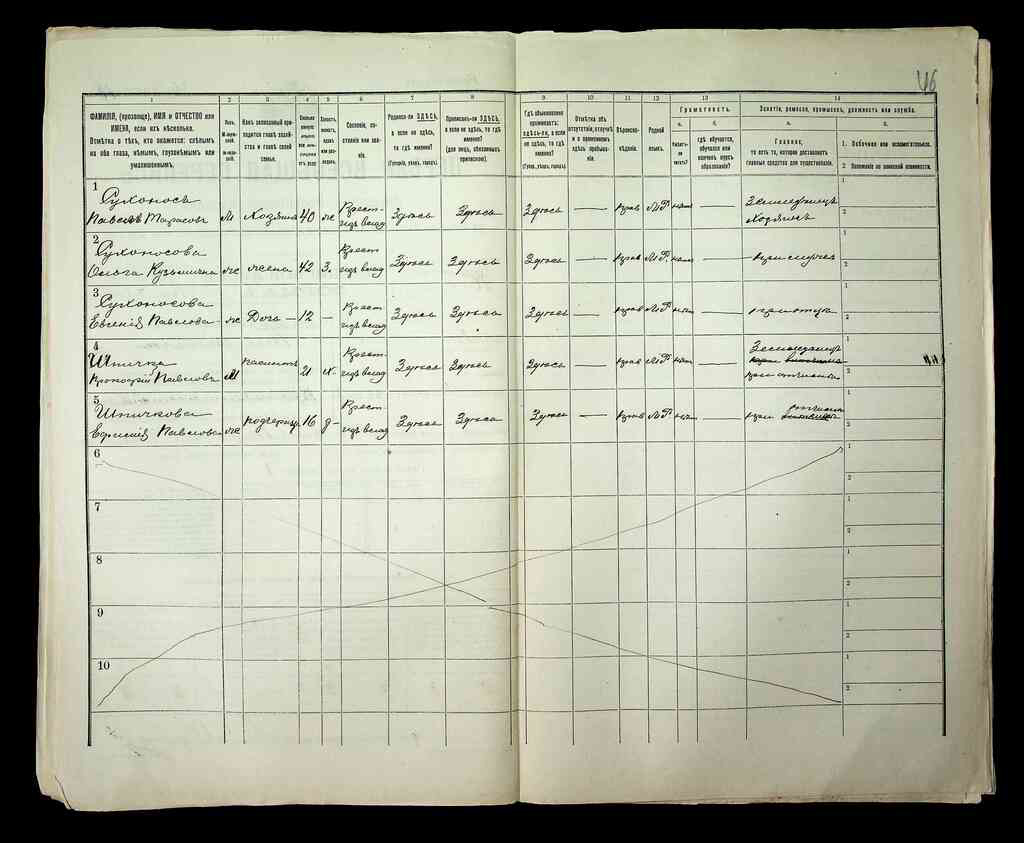 46
1 2 3 4 5 6 7 8 9 10 11 12 13 14
ФАМИЛІЯ, (прозвище), ИМЯ и ОТЧЕСТВО или
ИМЕНА, если ихъ нѣсколько.
Отмѣтка о тѣхъ, кто окажется: слѣпымъ
на оба глаза, нѣмымъ, глухонѣмымъ или
умалишеннымъ.
Полъ.
Какъ записанный при-
ходится главѣ хозяй-
ства и главѣ своей
семьи.
Сословіе, со-
стояніе или зва-
ніе.
Родился-ли ЗДѢСЬ,
а если не здѣсь,
то гдѣ
именно?
(Губернія, уѣздъ, городъ).
Приписанъ-ли ЗДѢСЬ,
а если не здѣсь, то гдѣ
именно?
(для лицъ, обязанныхъ
припискою).
Гдѣ обыкновенно
проживаетъ:
здѣсь-ли, а если
не здѣсь, то гдѣ
именно?
(Губер., уѣздъ, городъ).
Отмѣтка объ
отсутствіи, отлучкѣ
и о временномъ
здѣсь пребыва-
ніи.
Вѣроиспо-
вѣданіе.
Родной
языкъ.
Грамотность.
а.
Умѣетъ-
ли
читать?
б.
гдѣ обучается,
обучался или
кончилъ курсъ
образованія?
Занятіе, ремесло, промыселъ, должность или служба.
а.
Главное,
то есть то, которое доставляетъ
главныя средства для существованія.
б.
1. Побочное или вспомогательное.
2. Положеніе по воинской повинности.
1
Сухоносъ
Павелъ Тарасовъ М Хозяинъ 40 ж Крест- Здѣсь Здѣсь Здѣсь — прав М.Р. нѣт — Земледѣлецъ
Хозяинъ
1
2
2
Сухоносова
Ольга Кузьминична ж жена 42 З. Крест Здѣсь Здѣсь Здѣсь — прав М.Р. нѣт — при мужѣ
1
2
3
Сухоносова
Евгенія Павлова ж Дочь — 12 — Крест Здѣсь Здѣсь Здѣсь — прав М.Р. нѣт — при отцѣ
1
2
4
Шпичка
Павловъ М пасынокъ 21 х. Крест Здѣсь Здѣсь Здѣсь — прав М.Р. нѣт — Земледѣлецъ
при отчимѣ
1
2
5
Шпичкова
Павлова ж подчерица 16 д- Крест Здѣсь Здѣсь Здѣсь — прав М.Р. нѣт — при отчимѣ
1
2
6
1
2
7
1
2
8
1
2
9
1
2
10
1
2